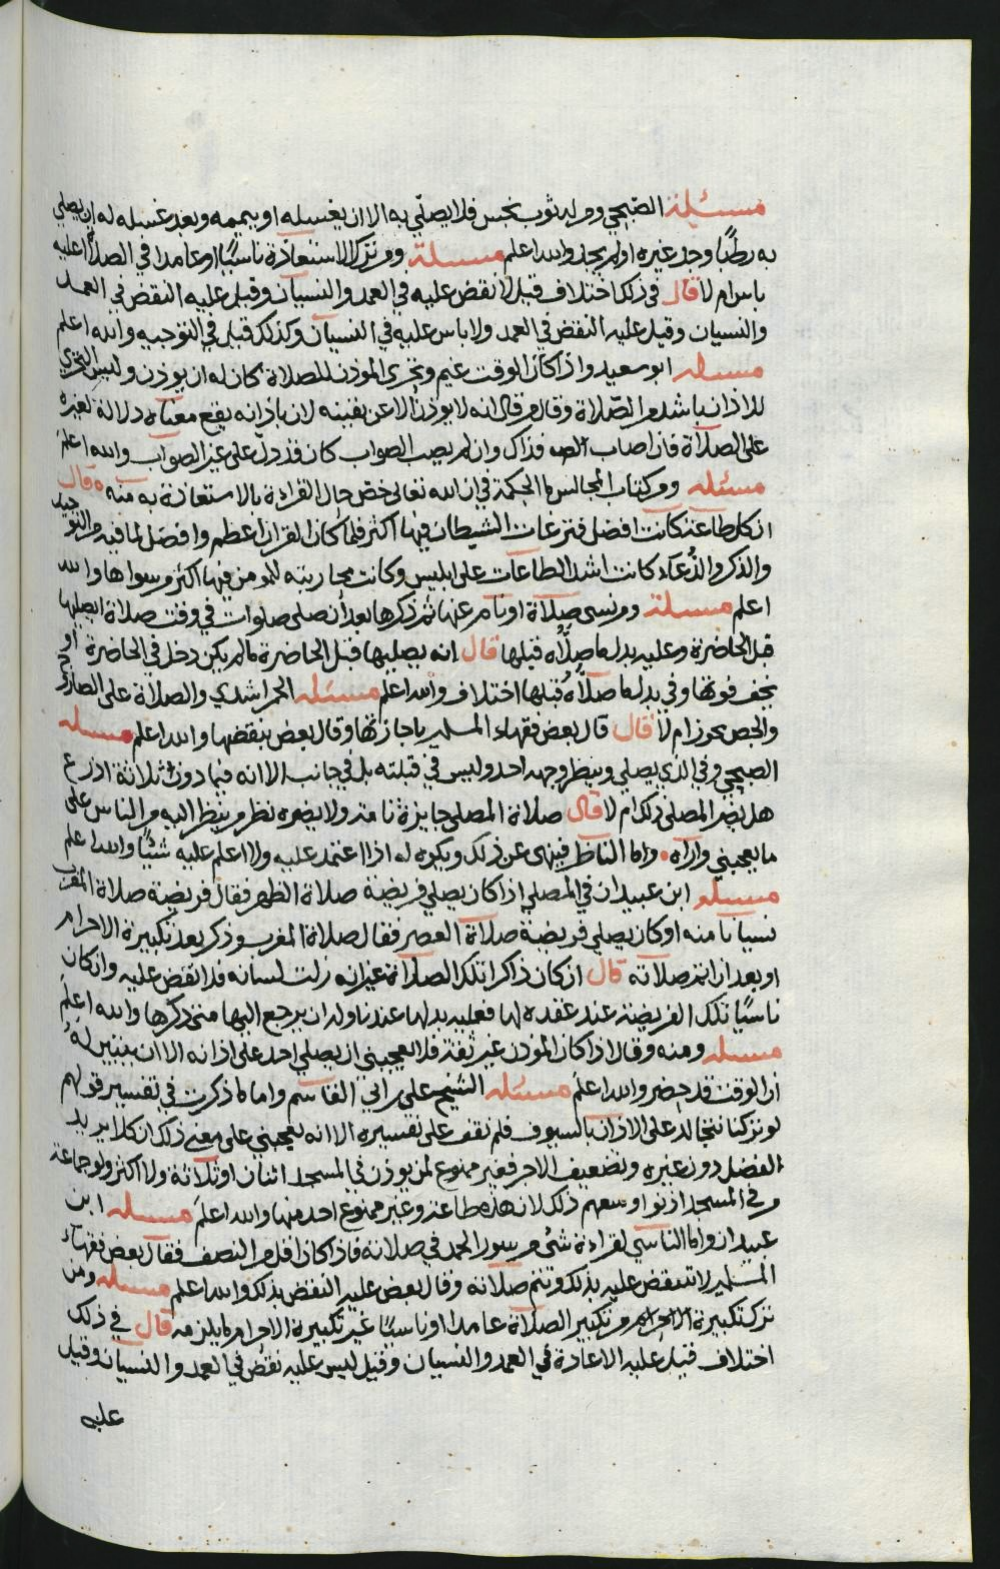 مسئلة الصبحي ومن له ثوب نجس فلا يصلي به الا ان يغسله او ييممه وبعد غسله له ان يصلي
به رطبًا وجد غيره او لم يجد والله اعلم مسئلة ومن ترك الاستعاذة ناسيًا او عامدا في الصلاة اعليه
باس ام لا قال في ذلك اختلاف قيل لا نقض عليه في العمد والنسيان وقيل عليه النقض في العمد
والنسيان وقيل عليه النقض في العمد ولا باس عليه في النسيان وكذلك قيل في التوجيه والله اعلم
مسئله ابو سعيد واذا كان الوقت غيم وتحرى الموذن للصلاة كان له ان يوذن وليس التحري
للاذان باشد من الصلاة وقال من قال انه لا يوذن الا عن يقينه لان باذانه يقع معناه دلالة لغيره
على الصلاة فان اصاب الصواب فذاك وان لم يصب الصواب كان قد دل على غير الصواب والله اعلم
مسئله ومن كتاب المجالس ما الحكمة في ان الله تعالى خص حال القراءة بالاستعاذة به منه قال
ان كل طاعة كانت افضل فنزغات الشيطان فيها اكثر فلما كان القران اعظم وافضل لما فيه من التوحيد
والذكر والدعاء كانت اشد الطاعات على ابليس وكانت محاربته للمومن فيها اكثر من سواها والله
اعلم مسئلة ومن نسي صلاة او نام عنها ثم ذكرها بعد ان صلى صلوات في وقت صلاة ايصليها
قبل الحاضرة وعليه بدل ما صلاه قبلها قال انه يصليها قبل الحاضرة ما لم يكن دخل في الحاضرة او
يخف فوتها وفي بدل ما صلاه قبلها اختلاف والله اعلم مسئله الحمراشدي والصلاة على الصاروج
والجص يجوز ام لا قال قال بعض فقهاء المسلمين باجازتها وقال بعض بنقضها والله اعلم مسئله
الصبحي وفي الذي يصلي وينظر وجهه احد وليس في قبلته بل في جانب الا انه فيما دون ثلاثة اذرع
هل يضر المصلي ذلك ام لا قال صلاة المصلي جايزة تامة ولا يضره نظر من ينظر اليه من الناس على
ما يعجبني واراه واما الناظر فينهى عن ذلك ويكره له اذا اعتمد عليه ولا اعلم عليه شيئًا والله اعلم
مسئله ابن عبيدان في المصلي اذا كان يصلي فريضة صلاة الظهر فقال فريضة صلاة المغرب
نسيانا منه او كان يصلي فريضة صلاة العصر فقال صلاة المغرب وذكر بعد تكبيرة الاحرام
او بعد ان اتم صلاته قال ان كان ذاكرا تلك الصلاة غير انه زلت لسانه فلا نقض عليه وان كان
ناسيًا تلك الفريضة عند عقده لها فعليه بدلها عندنا وله ان يرجع اليها متى ذكرها والله اعلم
مسئله ومنه وقال اذا كان الموذن غير ثقة فلا يعجبني ان يصلي احد على اذانه الا ان يتبين له
ان الوقت قد حضر والله اعلم مسئله الشيخ علي بن ابي القاسم واما ما ذكرت في تفسير قولهم
لو تركنا نتجالد على الاذان بالسيوف فلم نقف على تفسيره الا انه يعجبني على معنى ذلك ان كلا يريد
الفضل دون غيره وتضعيف الاجر فغير ممنوع لمن يوذن في المسجد اثنان او ثلاثة ولا اكثر ولو جماعة
من في المسجد اذنوا وسعهم ذلك لان هذه طاعة وغير ممنوع احد منها والله اعلم مسئله ابن
عبيدان واما الناسي لقراءة شيء من سور الحمد في صلاته فاذا كان اقل من النصف فقال بعض فقهاء
المسلمين لا تنتقض عليه بذلك وتتم صلاته وقال بعض عليه النقض بذلك والله اعلم مسئله ومن
ترك تكبيرة الاحرام من تكبير الصلاة عامدا او ناسيًا غير تكبيرة الاحرام ما يلزمه قال في ذلك
اختلاف قيل عليه الاعادة في العمد والنسيان وقيل ليس عليه نقض في العمد والنسيان وقيل
عليه